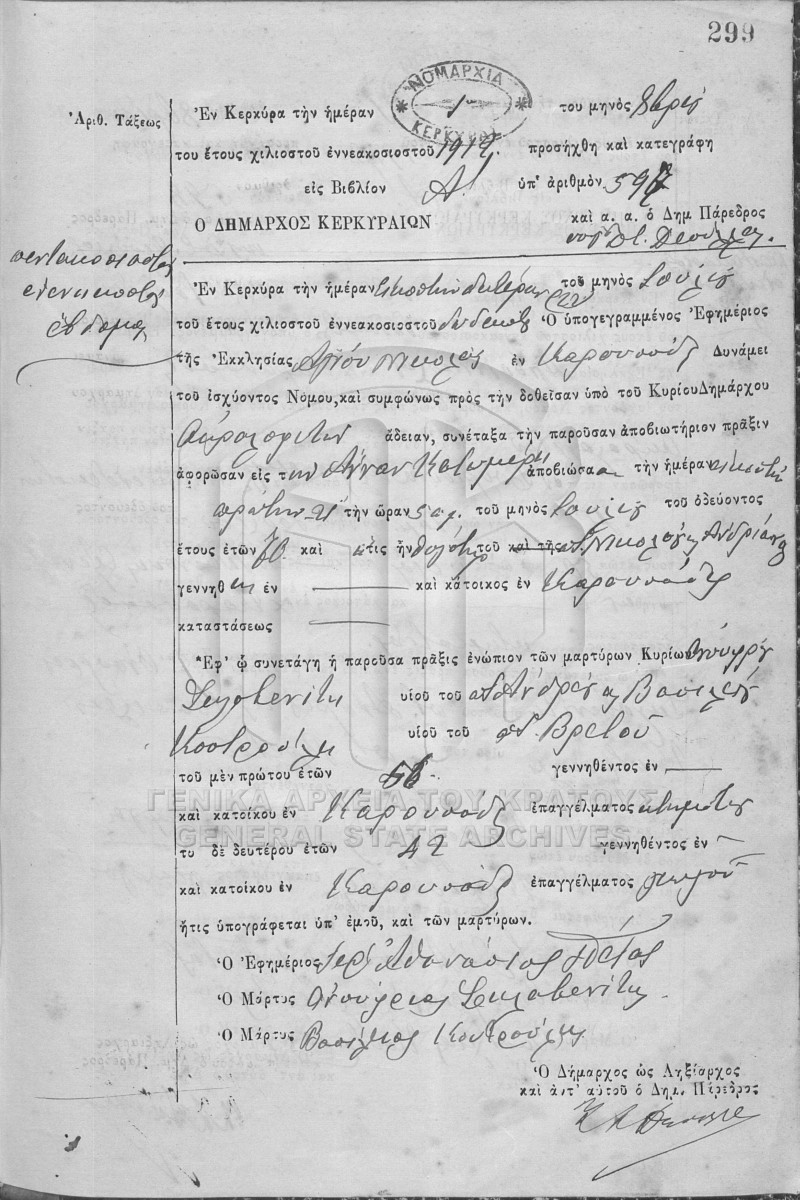 299
ΝΟΜΑΡΧΙΑ
ΚΕΡΚΥΡΑΣ
Ἀριθ. Τάξεως
Ἐν Κερκύρᾳ τὴν ἡμέραν 1ην τοῦ μηνὸς 8βρίου
τοῦ ἔτους χιλιοστοῦ ἐννεακοσιοστοῦ 1912 προσήχθη καὶ κατεγράφη
εἰς Βιβλίον Α΄ ὑπ' ἀριθμὸν 597
Ο ΔΗΜΑΡΧΟΣ ΚΕΡΚΥΡΑΙΩΝ
καὶ α. α. ὁ Δημ Πάρεδρος
πεντακοσιοστὸς
ἐνενηκοστὸς
ἕβδομος
Ἐν Κερκύρᾳ τὴν ἡμέραν εἰκοστὴν δευτέραν 22αν τοῦ μηνὸς Ἰουλίου
τοῦ ἔτους χιλιοστοῦ ἐννεακοσιοστοῦ δωδεκάτου Ὁ ὑπογεγραμμένος Ἐφημέριος
τῆς Ἐκκλησίας Ἁγίου Νικολάου ἐν Καρουσάδες Δυνάμει
τοῦ ἰσχύοντος Νόμου, καὶ συμφώνως πρὸς τὴν δοθεῖσαν ὑπὸ τοῦ Κυρίου Δημάρχου
ἄδειαν, συνέταξα τὴν παροῦσαν ἀποβιωτήριον πρᾶξιν
ἀφορῶσαν εἰς τὴν Ἄνναν Κατωμέρη ἀποβιώσασαν τὴν ἡμέραν εἰκοστὴν
πρώτην 21 τὴν ὥραν 5 μ. τοῦ μηνὸς Ἰουλίου τοῦ ὁδεύοντος
ἔτους ἐτῶν 70 καὶ ἥτις ἦν θυγάτηρ τοῦ καὶ τῆς Νικολάου Ἀνδριάνα
γεννηθ ἐν —— καὶ κάτοικος ἐν Καρουσάδες
καταστάσεως ——
Ἐφ' ᾧ συνετάγη ἡ παροῦσα πρᾶξις ἐνώπιον τῶν μαρτύρων Κυρίων Ὀνούφριου
Σκλαβενίτη υἱοῦ τοῦ Ἀνδρέου καὶ Βασιλείου
Κουτρούλη υἱοῦ τοῦ Βρεττοῦ
τοῦ μὲν πρώτου ἐτῶν 56 γεννηθέντος ἐν ——
καὶ κατοίκου ἐν Καρουσάδες ἐπαγγέλματος κτηματίου
το δὲ δευτέρου ἐτῶν 42 γεννηθέντος ἐν —
καὶ κατοίκου ἐν Καρουσάδες ἐπαγγέλματος
ἥτις ὑπογράφεται ὑπ' ἐμοῦ, καὶ τῶν μαρτύρων.
Ὁ Ἐφημέριος Ἱερεὺς Ἀθανάσιος
Ὁ Μάρτυς Ὀνούφριος Σκλαβενίτης
Ὁ Μάρτυς Βασίλειος Κουτρούλης
Ὁ Δήμαρχος ὡς Ληξίαρχος
καὶ ἀντ' αὐτοῦ ὁ Δημ. Πάρεδρος
ΓΕΝΙΚΑ ΑΡΧΕΙΑ ΤΟΥ ΚΡΑΤΟΥΣ
GENERAL STATE ARCHIVES